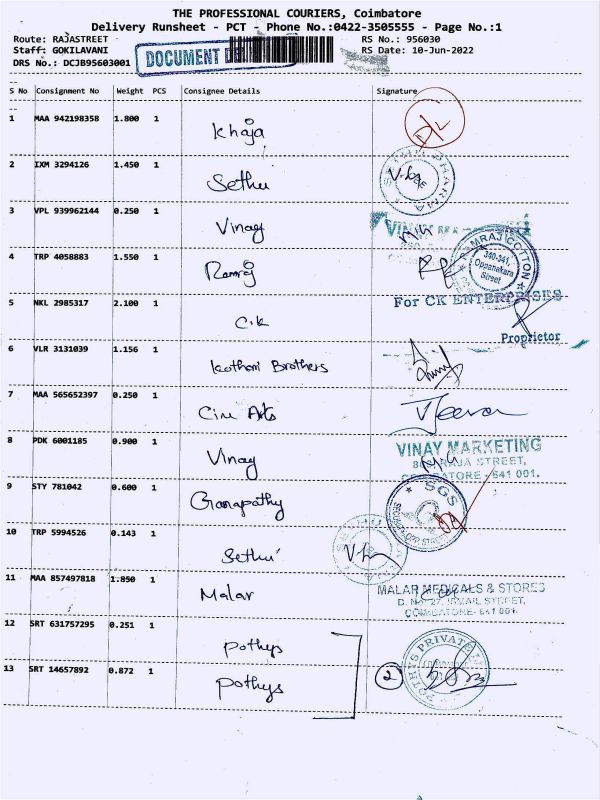 THE PROFESSIONAL COURIERS, Coimbatore
Delivery Runsheet - PCT - Phone No.:0422-3505555 - Page No.:1
Route: RAJASTREET
RS No.: 956030
Staff: GOKILAVANI
DOCUMENT
RS Date: 10-Jun-2022
DRS No.: DCJB95603001
S No Consignment No Weight PCS Consignee Details Signature
1 MAA 942198358 1.800 1 Khaja
2 IXM 3294126 1.450 1 Sethu
3 VPL 939962144 0.250 1 Vinay
VINAY
4 TRP 4058883 1.550 1 Ramraj
RAMRAJ COTTON
340-341,
Oppanakara
Street
5 NKL 2985317 2.100 1 C.K
For CK ENTERPRISES
Proprietor
6 VLR 3131039 1.156 1 Kothari Brothers
7 MAA 565652397 0.250 1 Cine Arts Jeevan
8 PDK 6001185 0.900 1 Vinay
VINAY MARKETING
RAJA STREET,
COIMBATORE - 641 001.
9 STY 781042 0.600 1 Ganapathy
SGS
10 TRP 5994526 0.143 1 Sethu
11 MAA 857497818 1.850 1 Malar
MALAR MEDICALS & STORES
D. No. 27, ISMAIL STREET,
COIMBATORE-641 001.
12 SRT 631757295 0.251 1 Pothys
13 SRT 14657892 0.872 1 Pothys
2
POTHYS PRIVATE